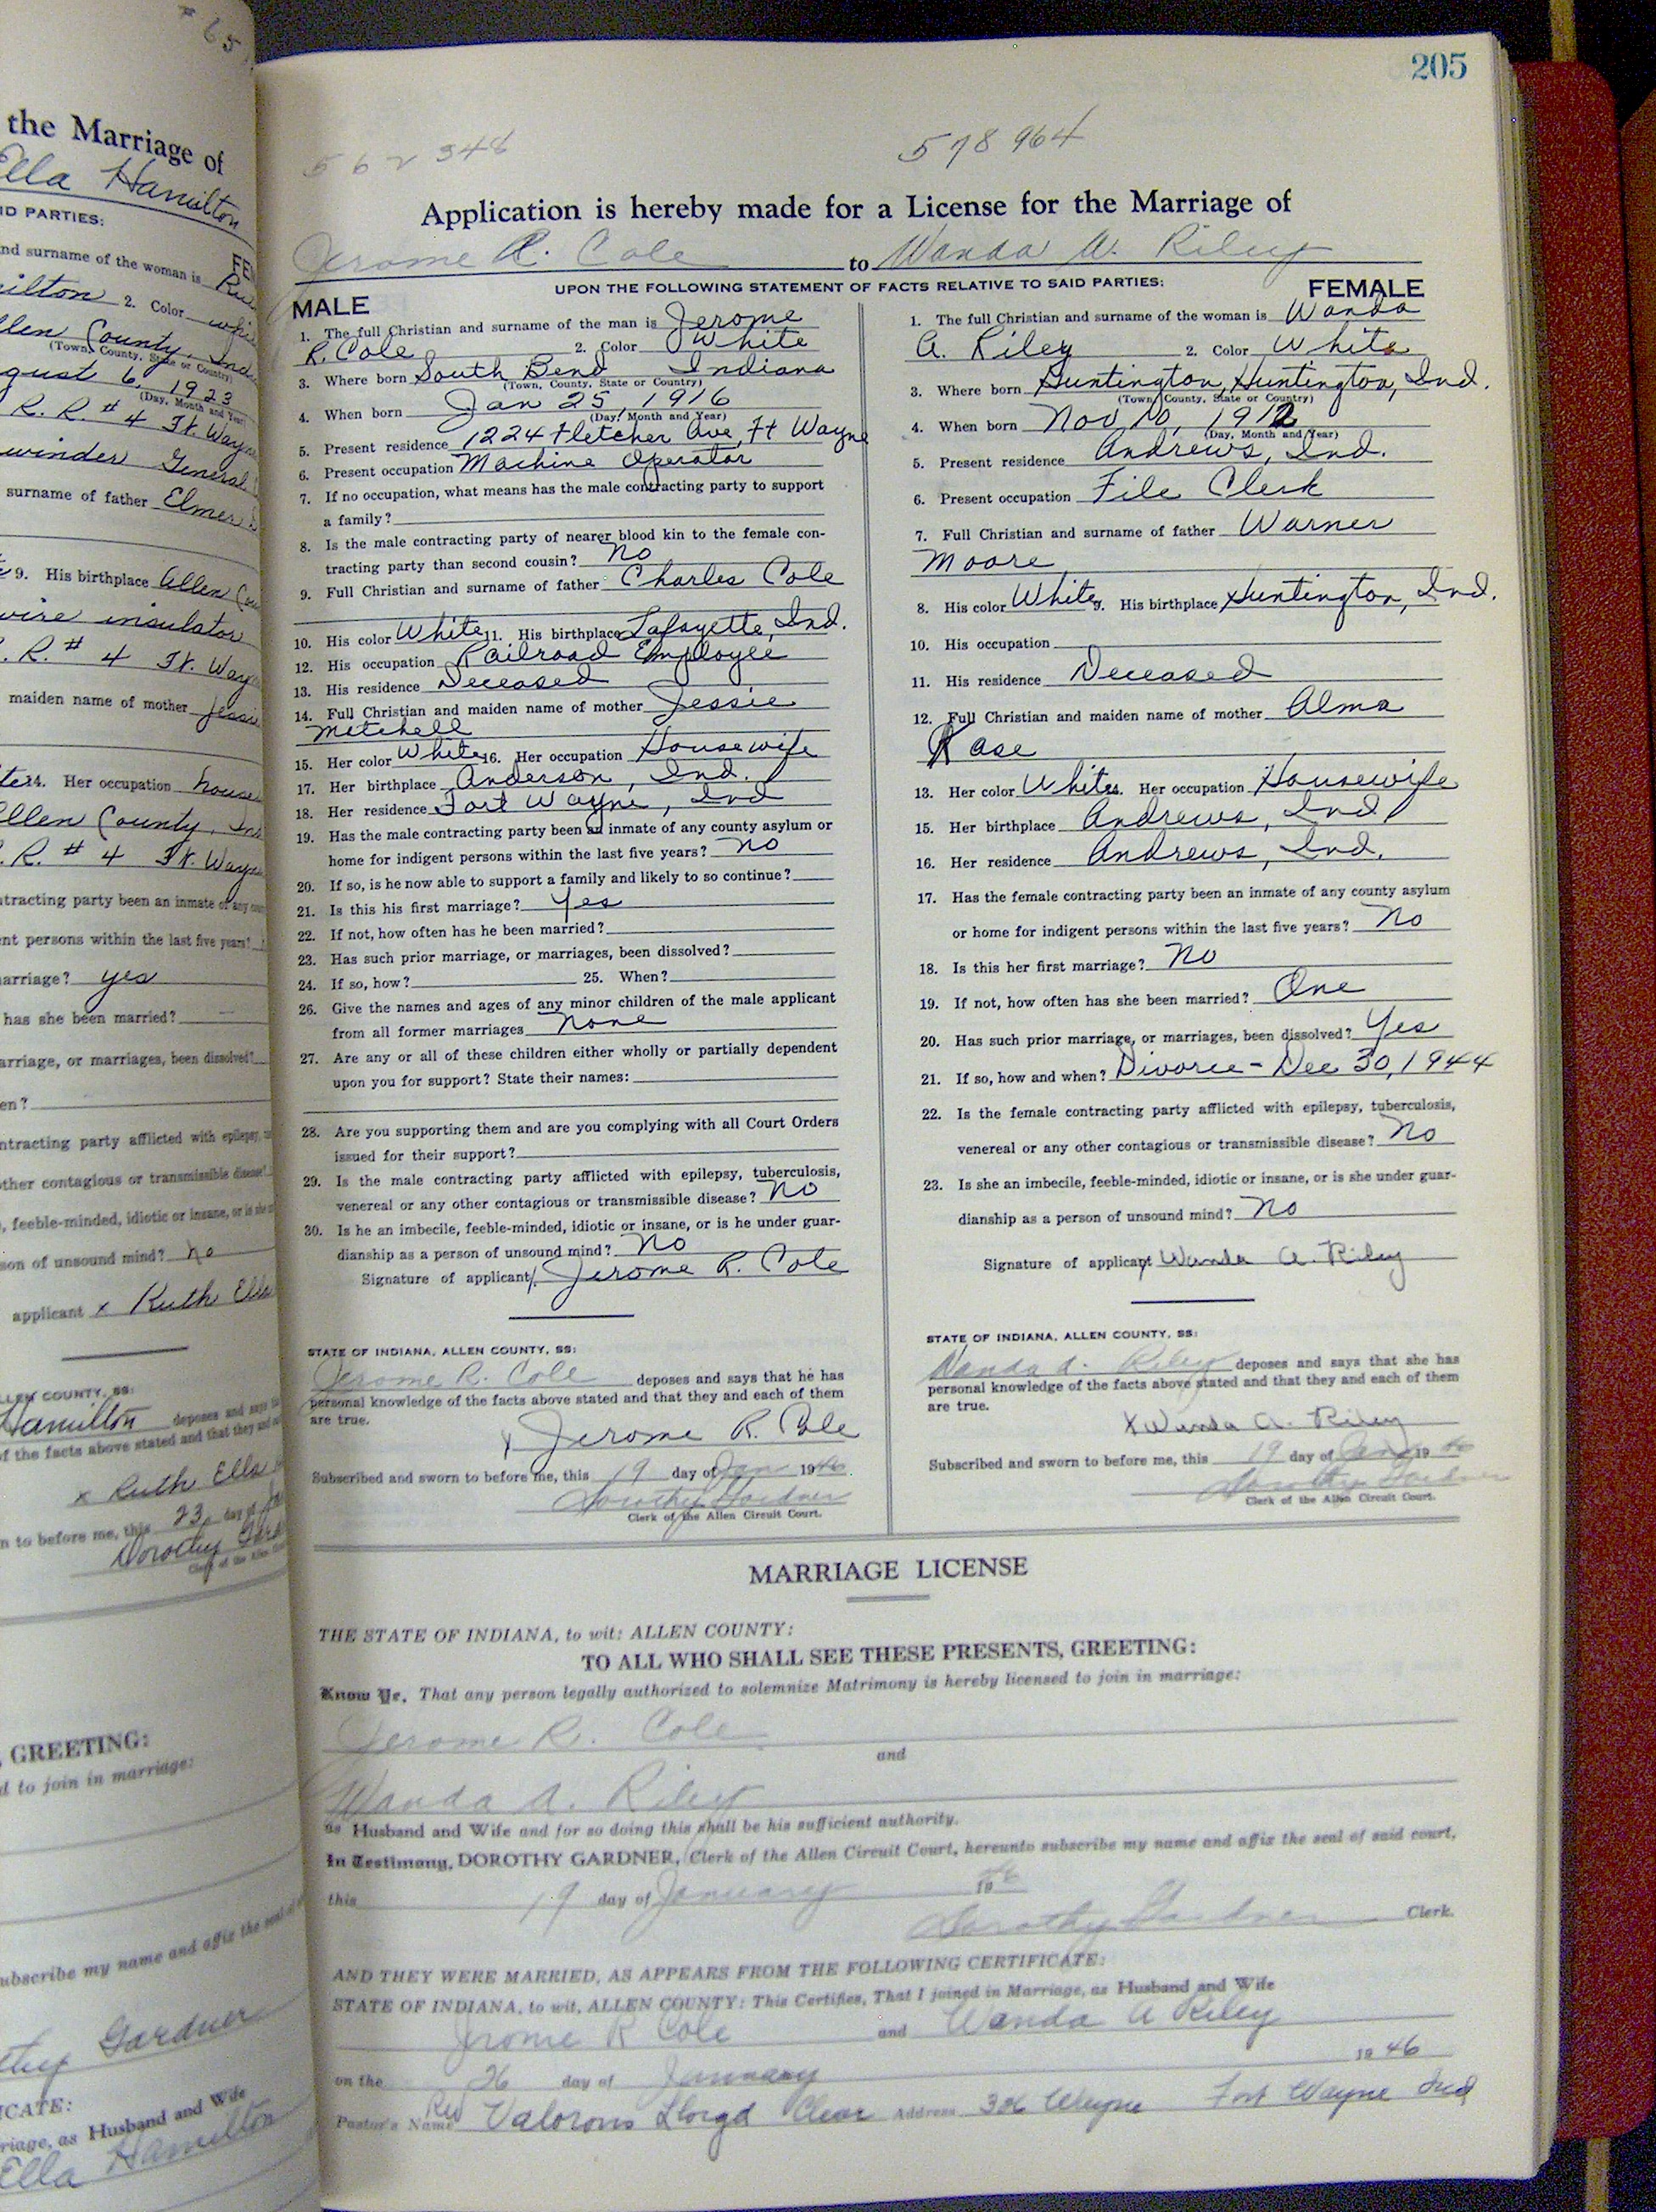 # 65
the Marriage of
Ella Hamilton
ID PARTIES:
nd surname of the woman is
ilton 2. Color whi
llen County, Ind
(Town, County, State or Country)
gust 6, 1923
(Day, Month and Year)
R. R. # 4 Ft. Wayn
winder General
surname of father Elmer
9. His birthplace Allen Cou
wire insulator
. R. # 4 Ft. Way
maiden name of mother Jessi
te 14. Her occupation house
llen County, Ind
. R. # 4 Ft. Wayn
tracting party been an inmate of any coun
nt persons within the last five years?
arriage? yes
has she been married?
arriage, or marriages, been dissolved?
en?
ntracting party afflicted with epilepsy,
other contagious or transmissible disease?
, feeble-minded, idiotic or insane, or is she
son of unsound mind? no
applicant x Ruth Ella
LLEN COUNTY, SS:
Hamilton deposes and says
of the facts above stated and that they and
x Ruth Ella
n to before me, this 23 day of
Dorothy Gard
Clerk of the Allen
, GREETING:
d to join in marriage:
ubscribe my name and affix the seal of
thy Gardner
ICATE:
riage, as Husband and Wife
Ella Hamilton
205
562 348 578 964
Application is hereby made for a License for the Marriage of
Jerome R. Cole to Wanda A. Riley
UPON THE FOLLOWING STATEMENT OF FACTS RELATIVE TO SAID PARTIES:
MALE
1. The full Christian and surname of the man is Jerome
R. Cole 2. Color White
3. Where born South Bend Indiana
(Town, County, State or Country)
4. When born Jan 25, 1916
(Day, Month and Year)
5. Present residence 1224 Fletcher Ave, Ft Wayne
6. Present occupation Machine Operator
7. If no occupation, what means has the male contracting party to support
a family?
8. Is the male contracting party of nearer blood kin to the female con-
tracting party than second cousin? No
9. Full Christian and surname of father Charles Cole
10. His color White 11. His birthplace Lafayette, Ind.
12. His occupation Railroad Employee
13. His residence Deceased
14. Full Christian and maiden name of mother Jessie
Mitchell
15. Her color White 16. Her occupation Housewife
17. Her birthplace Anderson, Ind.
18. Her residence Fort Wayne, Ind
19. Has the male contracting party been an inmate of any county asylum or
home for indigent persons within the last five years? No
20. If so, is he now able to support a family and likely to so continue?
21. Is this his first marriage? Yes
22. If not, how often has he been married?
23. Has such prior marriage, or marriages, been dissolved?
24. If so, how? 25. When?
26. Give the names and ages of any minor children of the male applicant
from all former marriages None
27. Are any or all of these children either wholly or partially dependent
upon you for support? State their names:
28. Are you supporting them and are you complying with all Court Orders
issued for their support?
29. Is the male contracting party afflicted with epilepsy, tuberculosis,
venereal or any other contagious or transmissible disease? No
30. Is he an imbecile, feeble-minded, idiotic or insane, or is he under guar-
dianship as a person of unsound mind? No
Signature of applicant x Jerome R. Cole
STATE OF INDIANA, ALLEN COUNTY, SS:
Jerome R. Cole deposes and says that he has
personal knowledge of the facts above stated and that they and each of them
are true.
x Jerome R. Cole
Subscribed and sworn to before me, this 19 day of Jan 1946
Dorothy Gardner
Clerk of the Allen Circuit Court.
FEMALE
1. The full Christian and surname of the woman is Wanda
A. Riley 2. Color White
3. Where born Huntington, Huntington, Ind.
(Town, County, State or Country)
4. When born Nov 10, 1912
(Day, Month and Year)
5. Present residence Andrews, Ind.
6. Present occupation File Clerk
7. Full Christian and surname of father Warner
Moore
8. His color White 9. His birthplace Huntington, Ind.
10. His occupation
11. His residence Deceased
12. Full Christian and maiden name of mother Alma
Kase
13. Her color White 14. Her occupation Housewife
15. Her birthplace Andrews, Ind
16. Her residence Andrews, Ind.
17. Has the female contracting party been an inmate of any county asylum
or home for indigent persons within the last five years? No
18. Is this her first marriage? No
19. If not, how often has she been married? One
20. Has such prior marriage, or marriages, been dissolved? Yes
21. If so, how and when? Divorce - Dec 30, 1944
22. Is the female contracting party afflicted with epilepsy, tuberculosis,
venereal or any other contagious or transmissible disease? No
23. Is she an imbecile, feeble-minded, idiotic or insane, or is she under guar-
dianship as a person of unsound mind? No
Signature of applicant x Wanda A. Riley
STATE OF INDIANA, ALLEN COUNTY, SS:
Wanda A. Riley deposes and says that she has
personal knowledge of the facts above stated and that they and each of them
are true.
x Wanda A. Riley
Subscribed and sworn to before me, this 19 day of Jan 1946
Dorothy Gardner
Clerk of the Allen Circuit Court.
MARRIAGE LICENSE
THE STATE OF INDIANA, to wit: ALLEN COUNTY:
TO ALL WHO SHALL SEE THESE PRESENTS, GREETING:
Know Ye, That any person legally authorized to solemnize Matrimony is hereby licensed to join in marriage:
Jerome R. Cole
and
Wanda A. Riley
as Husband and Wife and for so doing this shall be his sufficient authority.
In Testimony, DOROTHY GARDNER, Clerk of the Allen Circuit Court, hereunto subscribe my name and affix the seal of said court,
this 19 day of January 1946
Dorothy Gardner Clerk.
AND THEY WERE MARRIED, AS APPEARS FROM THE FOLLOWING CERTIFICATE:
STATE OF INDIANA, to wit, ALLEN COUNTY: This Certifies, That I joined in Marriage, as Husband and Wife
Jerome R Cole and Wanda A Riley
on the 26 day of January 1946
Pastor's Name Rev Lloyd Address Wayne Fort Wayne Ind